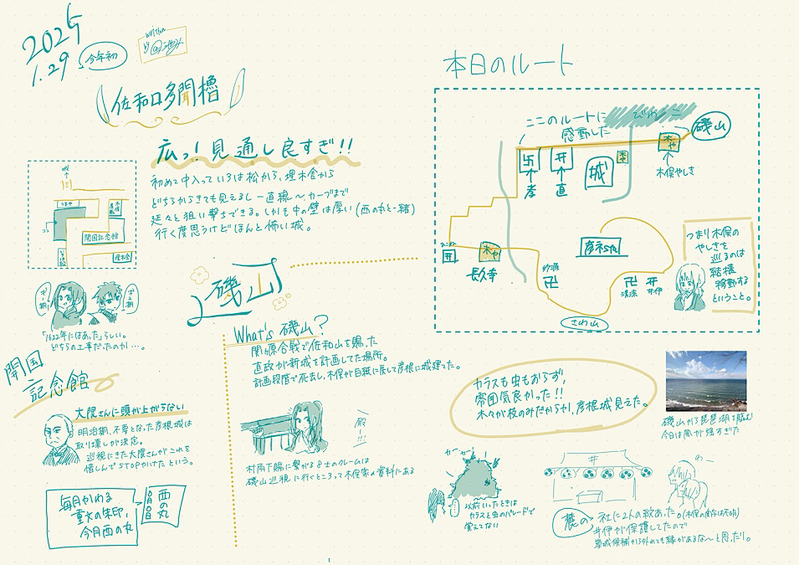 2025
1.29
今年初
佐和口多聞櫓
広っ！見通し良すぎ!!
初めて中入っていろは松から、埋木舎から
どちらからきても見えるし一直線〜カーブまで
延々と狙い撃ちできる。しかも中の壁は厚い(西の丸と一緒)
行く度思うけどほんと怖い城。
開国記念館
「1622年にはあった」らしい。
どちらの工事だったのか…。
開国
記念館
大隈さんに頭が上がらない
明治期、不要となった彦根城は
取り壊しが決定。
巡視にきた大隈さんがこれを
惜しんでSTOPかけたという。
毎月かわる
重大の朱印、
今月西の丸
西の丸
磯山
What's 磯山？
関ヶ原合戦で佐和山を賜った
直政が新城を計画してた場所。
計画段階で死去し、木俣が白紙に戻して彦根に城建てた。
殿ー!!!
磯山巡視に行くところって木俣家の資料にある
本日のルート
ここのルートに
感動した
びわこ
磯山
木俣やしき
卍
井
城
孝
直
長久寺
彦根駅
卍
卍
井
井伊
さわ山
つまり木俣の
やしきを
巡るのは
結構
移動する
ということ。
カラスも虫もおらず、
雰囲気良かった!!
木々が枝のみだからか、彦根城見えた。
磯山から琵琶湖を臨む
今日は風が強すぎた
ガー
ガー
以前いったときは
カラスと虫のパレードで
覚えてない
井
麓の
社に2人の紋あった。
井伊が保護してたので